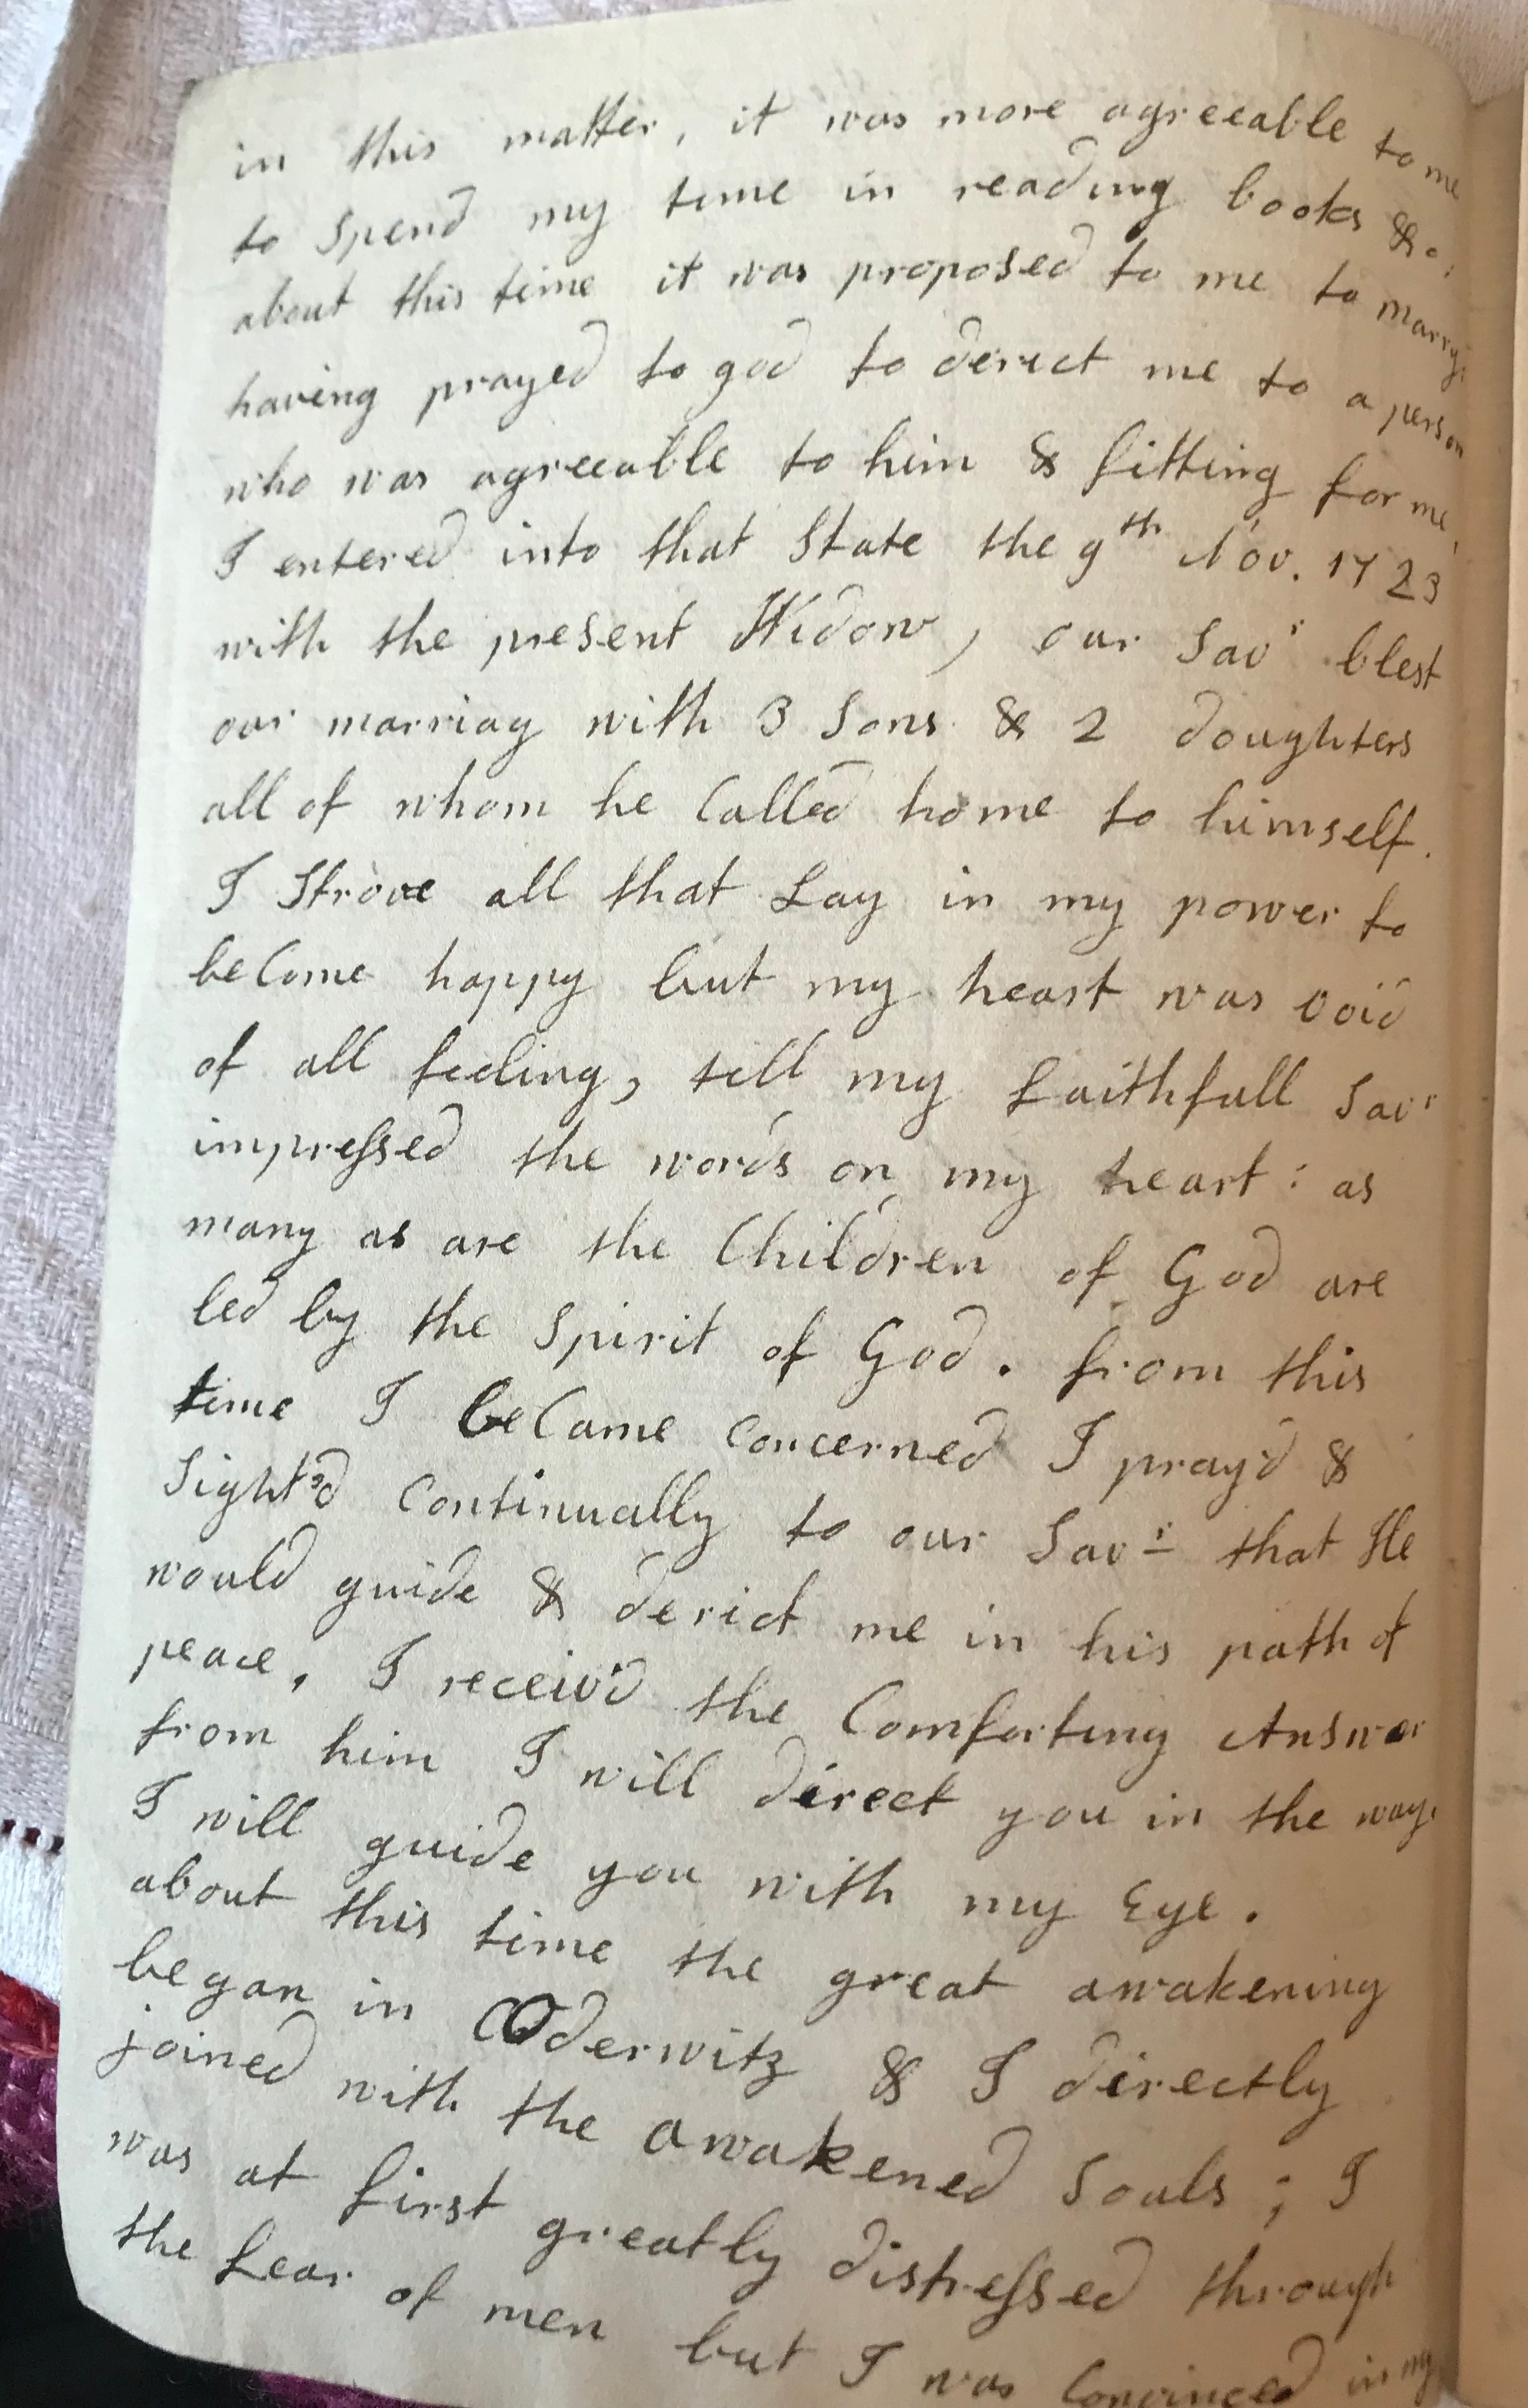 in this matter, it was more agreeable to me
to Spend my time in reading books &c;
about this time it was proposed to me to marry,
having prayed to god to derect me to a person
who was agreeable to him & fitting for me,
I entered into that State the 9th Nov. 1723
with the present Widow, our Savr blest
our marriag with 3 Sons & 2 doughters
all of whom he Called home to himself.
I Strove all that Lay in my power to
beCome happy but my heart was void
of all feeling, till my faithfull Savr
impressed the words on my heart: as
many as are the Children of God are
led by the Spirit of God. from this
time I beCame concerned I pray'd &
Sight'd Continually to our Savr that He
would guide & derict me in his path of
peace, I receiv'd the Comforting Answer
from him I will direct you in the way.
I will guide you with my Eye.
about this time the great awakening
began in Oderwitz & I directly
joined with the awakened Souls; I
was at first greatly distressed through
the fear of men but I was Convinced in my